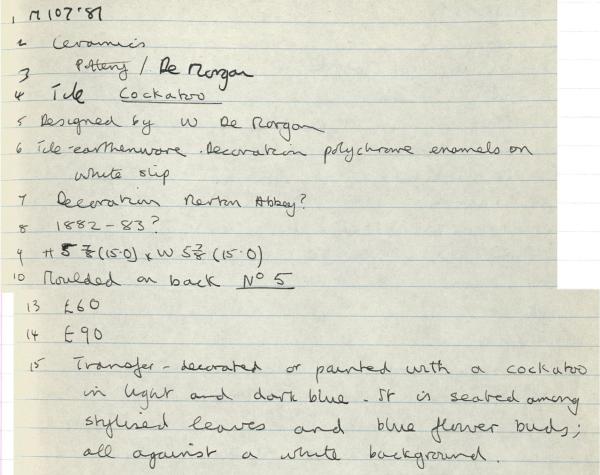 1 M107'87
2 Ceramics
3 Pottery / De Morgan
4 Tile Cockatoo
5 Designed by W De Morgan
6 Tile-earthenware. Decoration polychrome enamels on
white slip
7 Decoration Merton Abbey?
8 1882-83?
9 H 5 7/8 (15.0) x W 5 7/8 (15.0)
10 Moulded on back No 5
13 £60
14 £90
15 Transfer-decorated or painted with a cockatoo
in light and dark blue. It is seated among
stylised leaves and blue flower buds;
all against a white background.